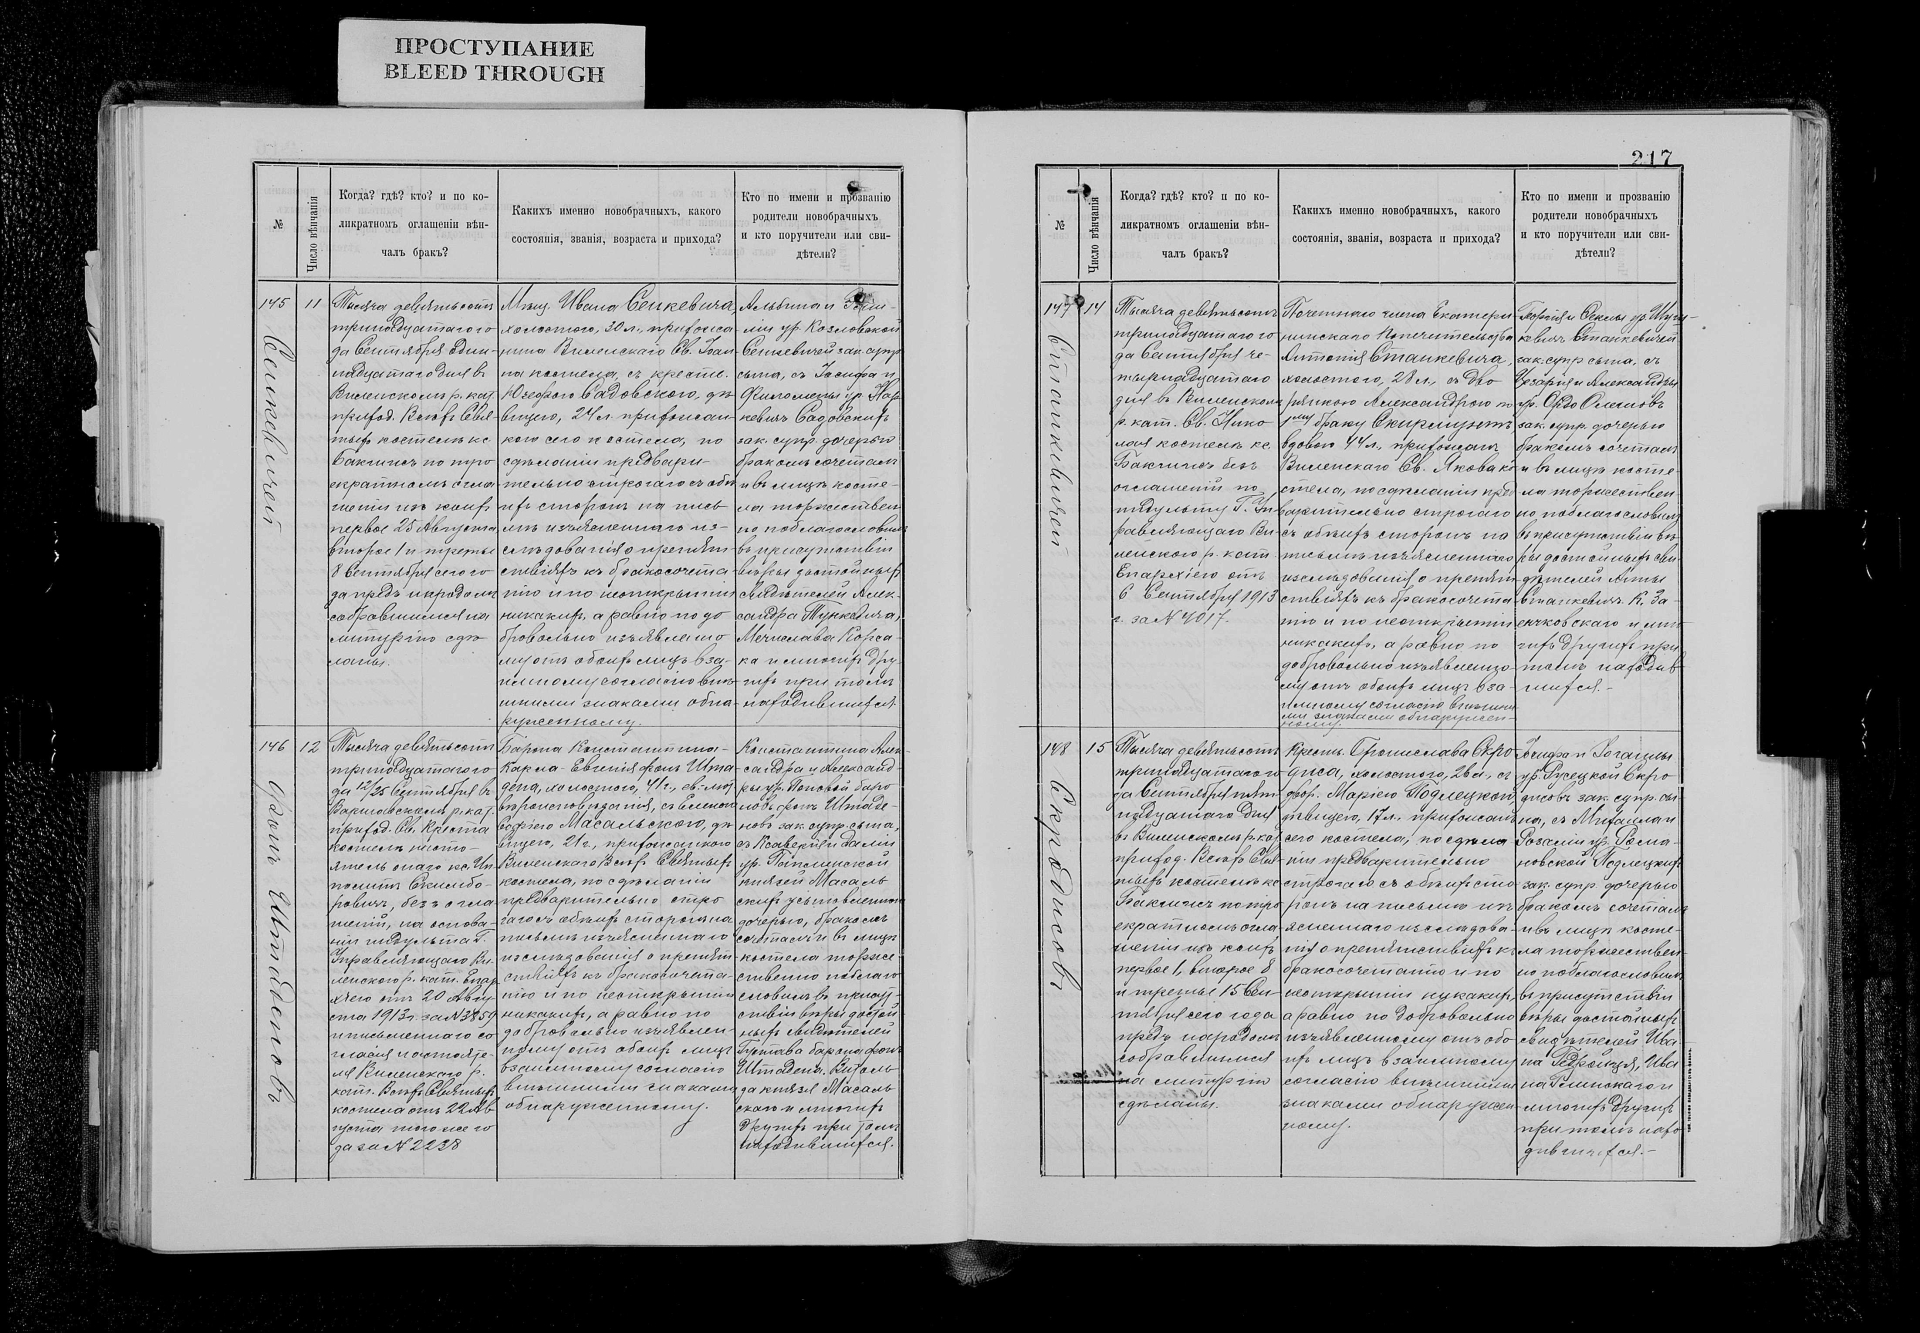 ПРОСТУПАНИЕ
BLEED THROUGH
№
Число вѣнчанія
Когда? гдѣ? кто? и по ко-
ликратномъ оглашеніи вѣн-
чалъ бракъ?
Какихъ именно новобрачныхъ, какого
состоянія, званія, возраста и прихода?
Кто по имени и прозванію
родители новобрачныхъ
и кто поручители или сви-
дѣтели?
145
Сенкевичей
11
Тысяча девятьсотъ
тринадцатаго го-
да Сентября один-
надцатаго дня въ
Виленскомъ р. кат.
приход. Всѣхъ Свя-
тыхъ костелѣ кс.
Бакшисъ по трое-
кратномъ огла-
шеніи изъ коихъ
первое 25 Августа
второе 1 и третье
8 Сентября сего го-
да предъ народомъ
собравшимся на
литургію сдѣ-
ланы.
Мѣщ. Ивана Сенкевича
холостого, 30 л., прихожа-
нина Виленскаго Св. Іоан-
на костела, съ крест.
Юзефою Садовскою, дѣ-
вицею, 24 л. прихожан-
кою сего костела, по
сдѣланіи предвари-
тельно строгаго съ обѣ-
ихъ сторонъ на пись-
мѣ изъясненнаго из-
слѣдованія о препят-
ствіяхъ къ бракосочета-
нію и по неоткрытіи
никакихъ, а равно по до-
бровольно изъявленно-
му отъ обоихъ лицъ вза-
имному согласію внѣ-
шними знаками обна-
руженному.
Альбина и Эми-
ліи ур. Козловской
Сенкевичей зак. супр.
сына, съ Іосифа и
Филомены ур. Нар-
кевичъ Садовскихъ
зак. супр. дочерью
бракомъ сочеталъ
и въ лицѣ косте-
ла торжествен-
но поблагословилъ
въ присутствіи
вѣры достойныхъ
свидѣтелей Алек-
сандра Тункевича,
Мечислава Корса-
ка и многихъ дру-
гихъ при томъ
находившихся
146
фонъ Штаденовъ
12
Тысяча девятьсотъ
тринадцатаго го-
да 12/25 Сентября въ
Варшавскомъ р. кат.
приход. Св. Креста
костелѣ насто-
ятель онаго кс. Ип-
политъ Скимбо-
ровичъ, безъ огла-
шеній, на основа-
ніи индульта Г.
Управляющаго Ви-
ленскою р. кат. Епар-
хіею отъ 20 Авгу-
ста 1913 г. за № 3859
и письменнаго со-
гласія настояте-
ля Виленскаго р.
кат. Всѣхъ Святыхъ
костела отъ 22 Ав-
густа того же го-
да за № 2238
Барона Константина-
Карла-Евгенія фонъ Шта-
дена, холостого, 41 г., ев.-лют.
вѣроисповѣданія, съ Еленою
Софіею Масальскою, дѣ-
вицею, 21 г., прихожанкою
Виленскаго Всѣхъ Святыхъ
костела, по сдѣланіи
предварительно стро-
гаго съ обѣихъ сторонъ на
письмѣ изъясненнаго
изслѣдованія о препят-
ствіяхъ къ бракосочета-
нію и по неоткрытіи
никакихъ, а равно по
добровольно изъявлен-
ному отъ обоихъ лицъ
взаимному согласію
внѣшними знаками
обнаруженному.
Константина Алек-
сандра и Александ-
ры ур. Поповой баро-
новъ фонъ Штаде-
новъ зак. супр. сына,
съ Ксаверія и Даліи
ур.
князей Масаль-
скихъ
дочерью, бракомъ
сочеталъ и въ лицѣ
костела торже-
ственно поблаго-
словилъ въ присут-
ствіи вѣры достой-
ныхъ свидѣтелей
Густава барона фонъ
Штаденъ, Витоль-
да князя Масаль-
скаго и многихъ
другихъ при томъ
находившихся.
217
№
Число вѣнчанія
Когда? гдѣ? кто? и по ко-
ликратномъ оглашеніи вѣн-
чалъ бракъ?
Какихъ именно новобрачныхъ, какого
состоянія, званія, возраста и прихода?
Кто по имени и прозванію
родители новобрачныхъ
и кто поручители или сви-
дѣтели?
147
Станкевичей
14
Тысяча девятьсотъ
тринадцатаго го-
да Сентября че-
тырнадцатаго
дня въ Виленскомъ
р. кат. Св. Нико-
лая костелѣ кс.
Бакшисъ безъ
оглашеній по
индульту Г. Уп-
равляющаго Ви-
ленскою р. кат.
Епархіею отъ
6 Сентября 1913
г. за № 4017.
Почетнаго члена Екатери-
нинскаго Попечительства
Антонія Станкевича,
холостого, 28 л., съ дво-
рянкою Александрою по
1му браку Скирмунтъ
вдовою 44 л., прихожан.
Виленскаго Св. Якова ко-
стела, по сдѣланіи пред-
варительно строгаго
съ обѣихъ сторонъ на
письмѣ изъясненнаго
изслѣдованія о препят-
ствіяхъ къ бракосочета-
нію и по неоткрытіи
никакихъ, а равно по
добровольно изъявленно-
му отъ обоихъ лицъ вза-
имному согласію внѣшни-
ми знаками обнаружен-
ному.
Станкевичей
зак. супр. сына, съ
Цезарія и Александры
ур.
зак. супр. дочерью
бракомъ сочеталъ
и въ лицѣ косте-
ла торжествен-
но поблагословилъ
въ присутствіи вѣ-
ры достойныхъ сви-
дѣтелей Анны
Станкевичъ К. За-
енчковскаго и мно-
гихъ другихъ при
томъ находив-
шихся.-
148
Скродисовъ
15
Тысяча девятьсотъ
тринадцатаго го-
да Сентября пят-
надцатаго дня
въ Виленскомъ р. кат.
приход. Всѣхъ Свя-
тыхъ костелѣ кс.
Бакшисъ по тро-
екратномъ огла-
шеніи изъ коихъ
первое 1, второе 8
и третье 15 Сен-
тября сего года
предъ народомъ
собравшимся
на литургію
сдѣланы.
Крест. Бронислава Скро-
диса, холостого, 26 л., съ
двор. Маріею Подлецкой
дѣвицею, 17 л. прихожан.
сего костела, по сдѣла-
ніи предварительно
строгаго съ обѣихъ сто-
ронъ на письмѣ изъ-
ясненнаго изслѣдова-
нія о препятствіяхъ къ
бракосочетанію и по
неоткрытіи никакихъ,
а равно по добровольно
изъявленному отъ обо-
ихъ лицъ взаимному
согласію внѣшними
знаками обнаружен-
ному.
ур. Русецкой Скро-
дисовъ зак. супр. сы-
на, съ Михаила и
Розаліи ур. Рома-
новской Подлецкихъ
зак. супр. дочерью
бракомъ сочеталъ
и въ лицѣ косте-
ла торжествен-
но поблагословилъ
въ присутствіи
вѣры достойныхъ
свидѣтелей Ива-
на Гедройця, Ива-
на Глинскаго и
многихъ другихъ
при томъ нахо-
дившихся.-